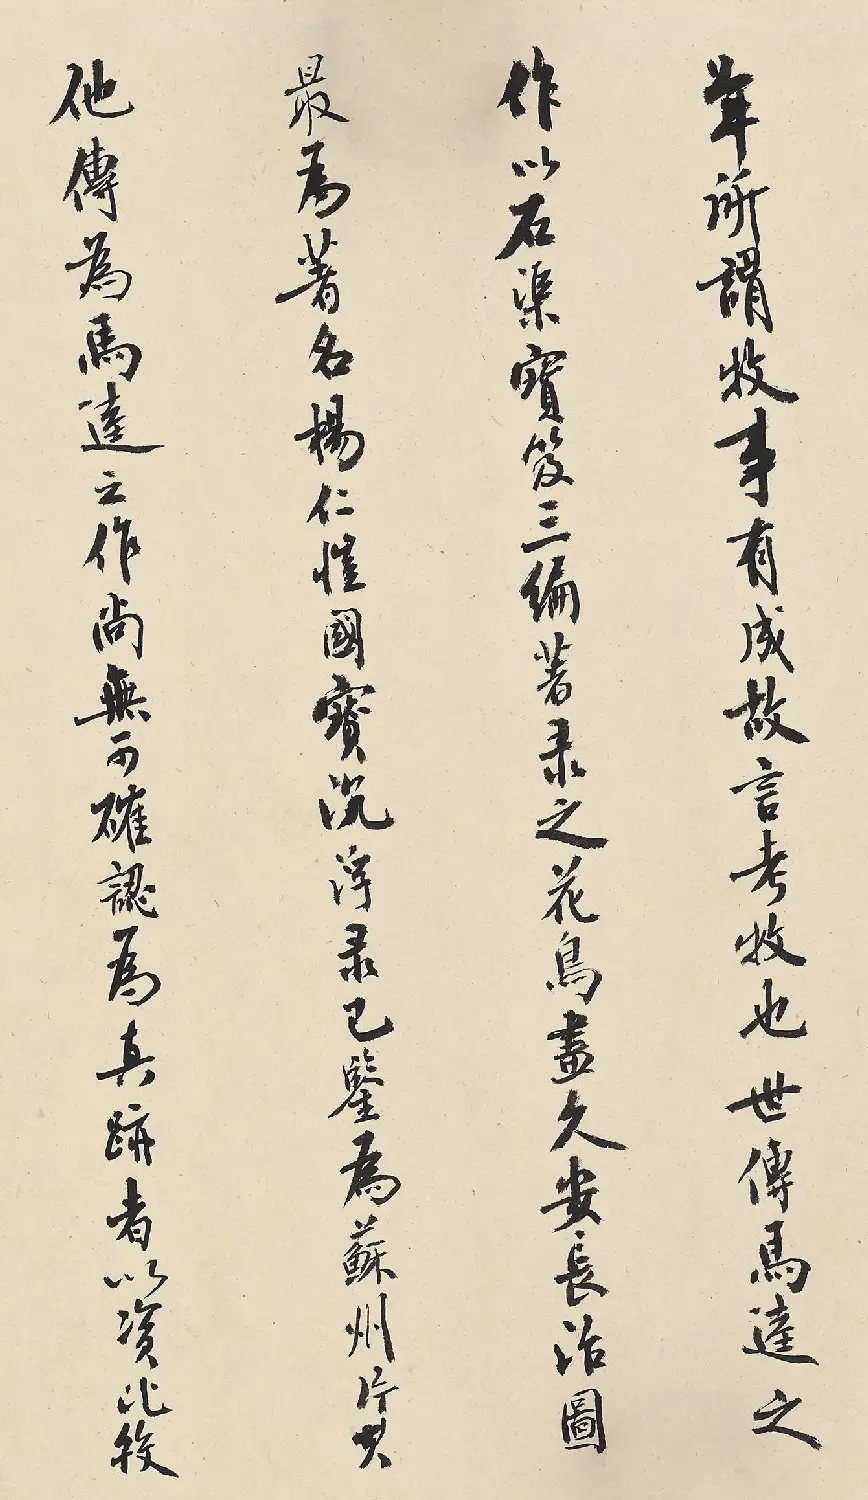 年所謂牧事有成故言考牧也世傳馬逵之
作以石渠寶笈三編著录之花鳥畫久安長治圖
最為著名楊仁愷國寶沉浮录已鑒為蘇州片其
他傳為馬逵之作尚無可確認為真跡者以資比較